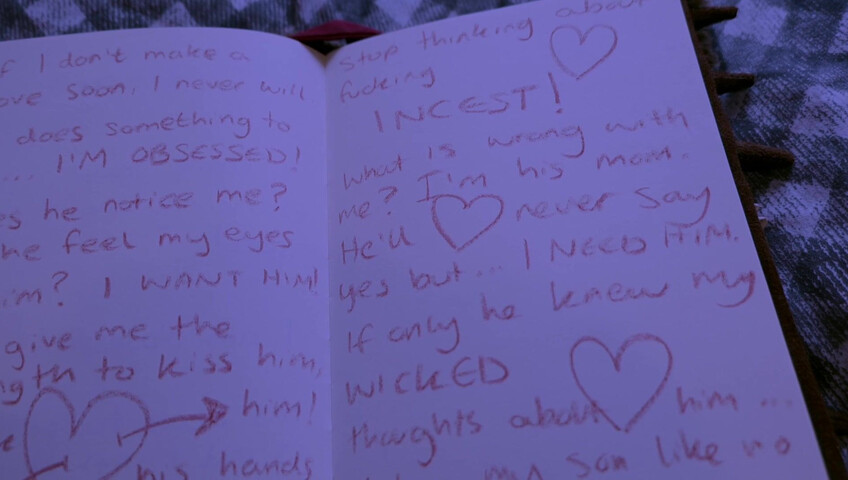 f I don't make a
ove soon, I never will
does something to
... I'M OBSESSED!
es he notice me?
he feel my eyes
im? I WANT HIM!
give me the
gth to kiss him,
him!
his hands
stop thinking about
fucking
INCEST!
what is wrong with
me? I'm his mom.
He'll never say
yes but... I NEED HIM.
If only he knew my
WICKED
thoughts about him...
my son like no